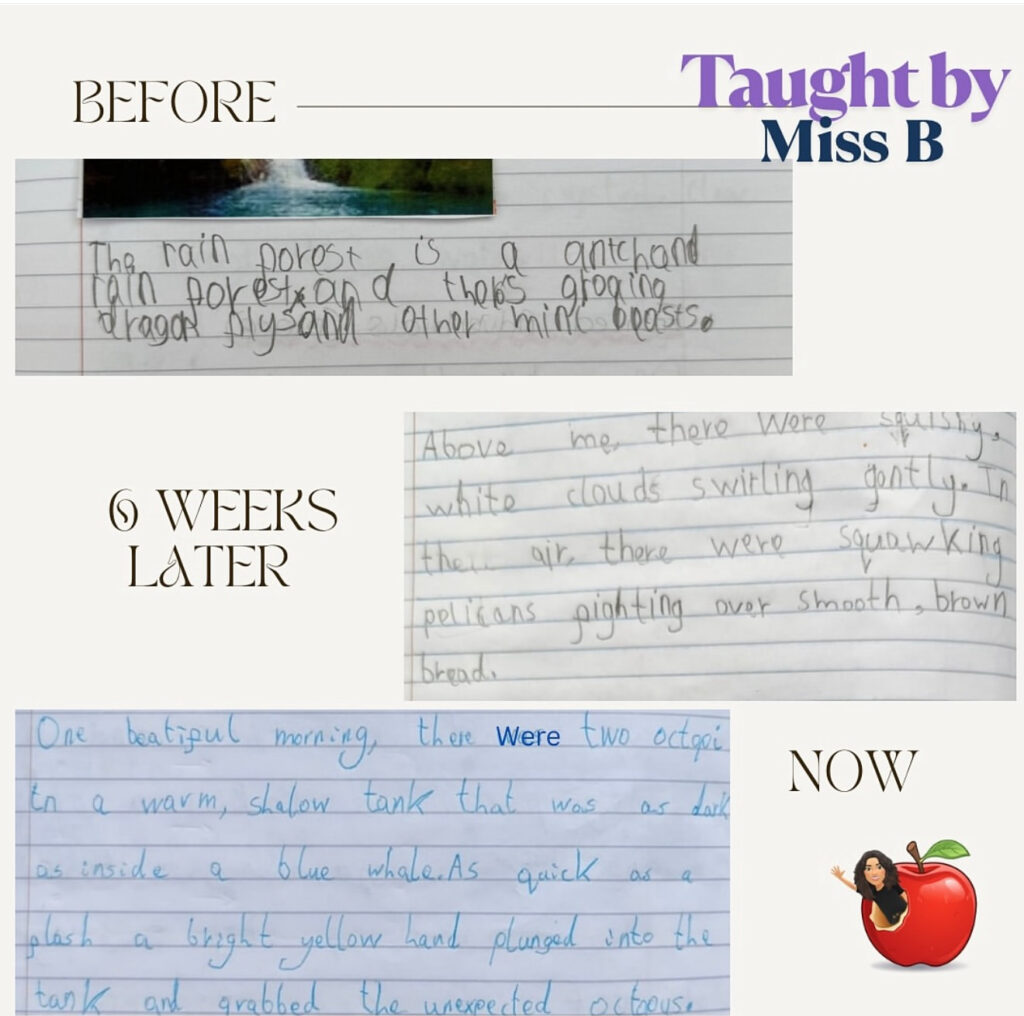 BEFORE
Taught by
Miss B
The rain porest is a antchand
rain porest and thers groging
dragon plys and other mini beasts.
Above me, there were squishy,
white clouds swirling gently. In
the air, there were squawking
pelicans pighting over smooth, brown
bread.
6 WEEKS
LATER
One beatipul morning, there Were two octopi
in a warm, shalow tank that was as dark
as inside a blue whale. As quick as a
plash a bright yellow hand plunged into the
tank and grabbed the unexpected octopus.
NOW